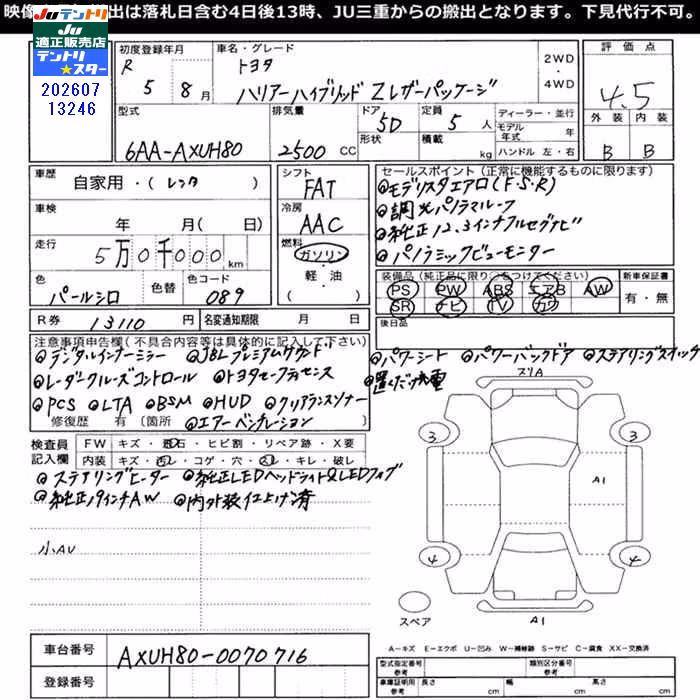 映像 出は落札日含む4日後13時、JU三重からの搬出となります。下見代行不可。
JUテントリ
JU適正販売店
テントリ★スター
202607
13246
初度登録年月
R 5年 8月
車名・グレード
トヨタ
ハリアーハイブリッド Zレザーパッケージ
2WD・4WD
評価点
4.5
外装 内装
B B
型式
6AA-AXUH80
排気量
2500 CC
ドア形状
5D
定員 5人
積載 kg
ディーラー・並行
モデル年式 年
ハンドル 左・右
車歴
自家用・(レンタ)
車検
年 月( 日)
走行
5万0千000km
色
パールシロ
色替
色コード
089
シフト
FAT
冷房
AAC
燃料
ガソリン・軽・油
( )
R券 13110円
名変通知期限 月 日
セールスポイント(正常に機能するものに限ります)
◎モデリスタエアロ(F・S・R)
◎調光パノラマルーフ
◎純正12.3インチフルセグナビ
◎パノラミックビューモニター
装備品(純正品に限り○をつけてください)
PS PW ABS エアB AW
SR ナビ TV カワ
新車保証書
有・無
後日品
注意事項申告欄(不具合内容等は具体的に記入して下さい)
◎デジタルインナーミラー ◎JBLプレミアムサウンド ◎パワーシート ◎パワーバックドア ◎ステアリングスイッチ
◎レーダークルーズコントロール ◎トヨタセーフティセンス ◎置くだけ充電
◎PCS ◎LTA ◎BSM ◎HUD ◎クリアランスソナー
修復歴 有(箇所 ◎エアーベンチレーション)
検査員記入欄
FW キズ・飛石・ヒビ割・リペア跡・X要
内装 キズ・汚レ・コゲ・穴・スレ・キレ・破レ
◎ステアリングヒーター ◎純正LEDヘッドライト&LEDフォグ
◎純正19インチAW ◎内外装仕上げ済
小AU
スリA
3 3
A1
4 4
スペア
A1
A-キズ E-エクボ U-凹み W-補修跡 S-サビ C-腐食 XX-交換済
車台番号 AXUH80-0070716
登録番号
型式指定番号 参考
類別区分番号 参考
車庫証明用 参考 長さ cm 幅 cm 高さ cm